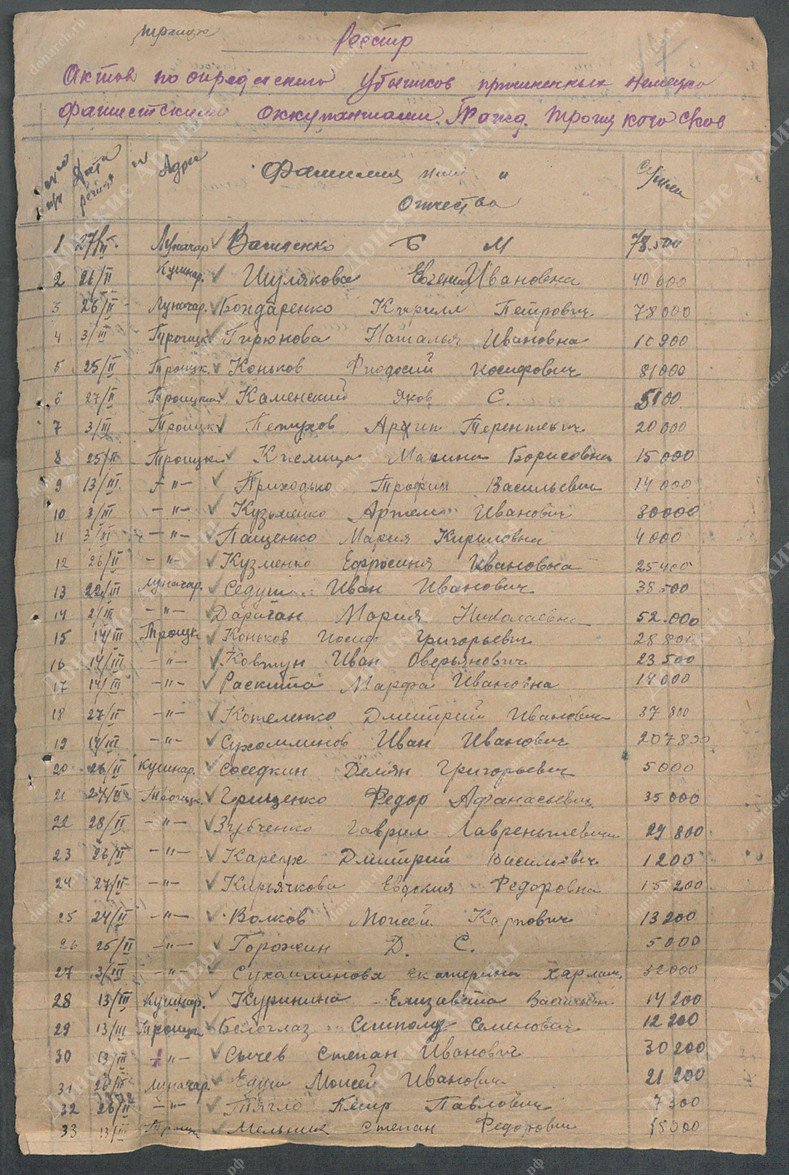 Троицк
Реестр
17
Актов по определению Убытков причиненных немецко
фашистскими оккупантами. Гражд. Троицкого с/сов
Дата Адрес Фамилия имя и Сумма
Отчества
1 27/III Луначар. Б М 78.500
2 26/II Кушнар. Шулякова Евгения Ивановна 40 000
3 26/II Луначар. Бондаренко Кирилл Петрович 78000
4 3/III Троицк Наталья Ивановна
5 25/II Троицк. Коньков Феодосий Иосифович 81000
6 27/II Троицк Каменский Яков С. 5100
7 3/III Троицк Петухов Архип Терентьевич 20 000
8 25/III Троицк Марина Борисовна 15 000
9 13/III -"- Приходько Трофим Васильевич 14 000
10 3/III -"- Кузьменко Артем Иванович 30000
11 3/III -"- Пащенко Мария Кириловна 4 000
12 26/II -"- Кузменко Ефросиния Ивановна 25400
13 Луначар. Седуш Иван Иванович 38 500
14 2/III -"- Дариган Мария Николаевна 52.000
15 14/III Троицк. Коньков Иосиф Григорьевич 28 800
16 14/III -"- Ковтун Иван Оверьянович 23 500
17 14/III -"- Раскита Марфа Ивановна 14 000
18 27/II -"- Котеленко Дмитрий Иванович 37 800
19 14/III -"- Сухомлинов Иван Иванович 207800
20 26/II Кушнар. Соседкин Демян Григорьевич 5000
21 27/II Троицк Грищенко Федор Афанасьевич 35 000
22 28/II -"- Зубченко Гаврил Лаврентьевич 29 800
23 26/II -"- Дмитрий Васильевич 1200
24 27/II -"- Кирьячкова Евдокия Федоровна 15 200
25 24/II -"- Волков Моисей Карпович 13 200
26 25/II -"- Горожин Д. С. 5000
27 3/III -"- Сухомлинова Екатерина Харлам. 32000
28 13/III Кушнар. Куринина Елизавета 14 200
29 13/III Троицк Белоглаз Семенович 12 200
30 13/III -"- Сычев Степан Иванович 30 200
31 26/II Луначар. Моисей Иванович 21 200
32 26/II -"- Тягло Павлович 7 300
33 13/III Троицк Мельник Степан Федорович 18300
Донские Архивы
donarch.ru
донскиеархивы.рф